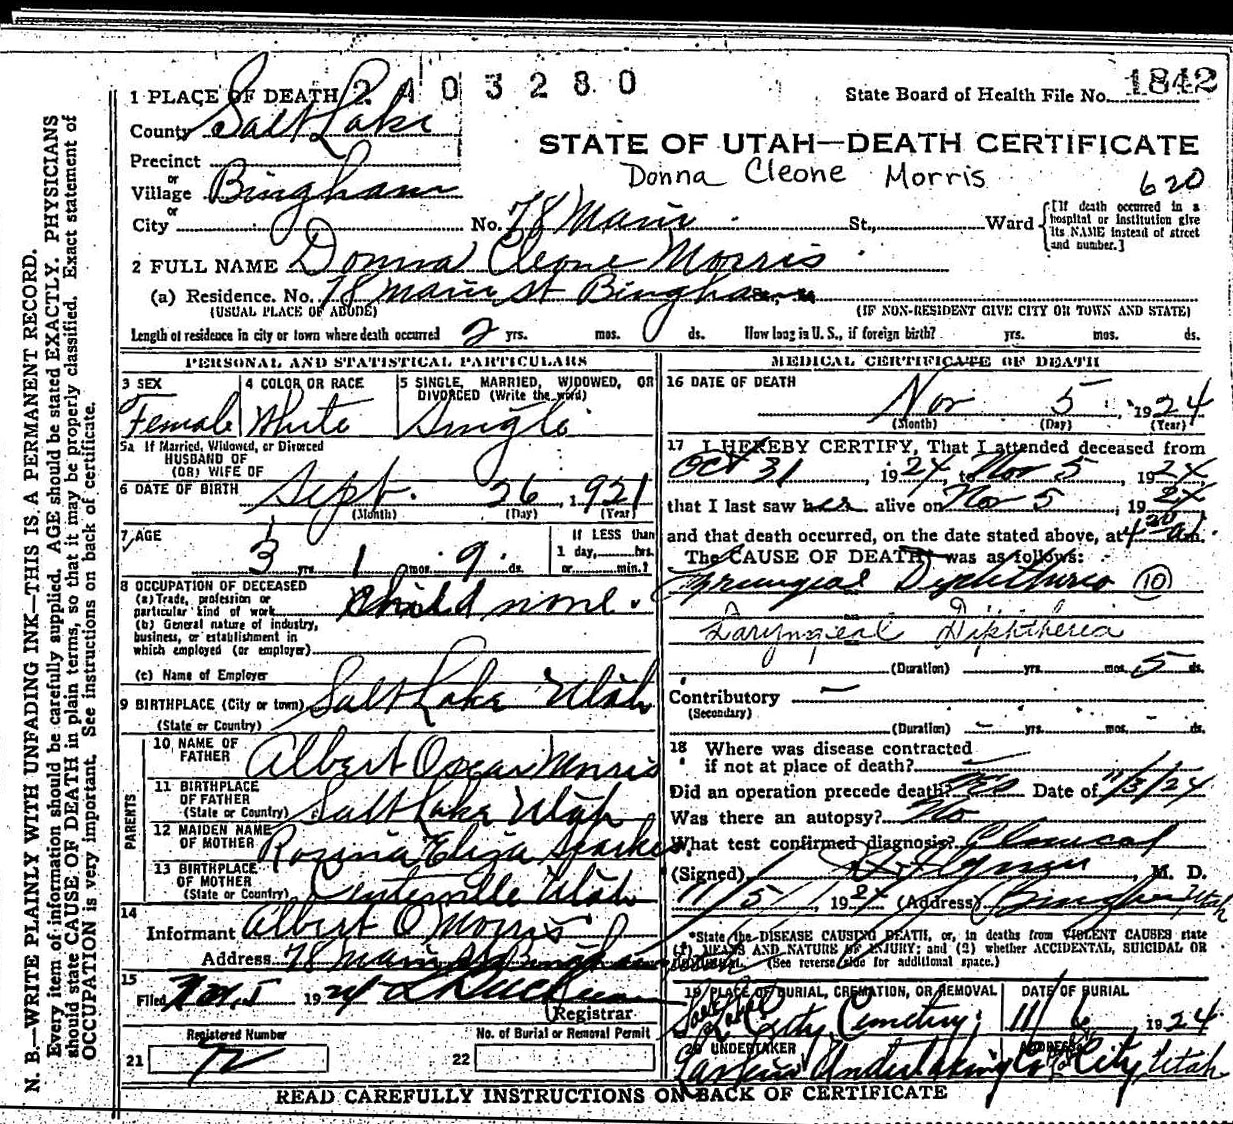 1 PLACE OF DEATH 2 4 0 3 2 8 0
State Board of Health File No. 1842
County Salt Lake
STATE OF UTAH—DEATH CERTIFICATE
Precinct
Donna Cleone Morris
or
Village Bingham
620
or
City No. 78 Main St., Ward
[If death occurred in a hospital or institution give its NAME instead of street and number.]
2 FULL NAME Donna Cleone Morris
(a) Residence. No. 78 Main St Bingham
(USUAL PLACE OF ABODE) (IF NON-RESIDENT GIVE CITY OR TOWN AND STATE)
Length of residence in city or town where death occurred 2 yrs. mos. ds. How long in U. S., if foreign birth? yrs. mos. ds.
PERSONAL AND STATISTICAL PARTICULARS
3 SEX 4 COLOR OR RACE 5 SINGLE, MARRIED, WIDOWED, OR DIVORCED (Write the word)
Female White Single
5a If Married, Widowed, or Divorced
HUSBAND OF
(OR) WIFE OF
6 DATE OF BIRTH Sept. 26, 1921
(Month) (Day) (Year)
7 AGE If LESS than
3 yrs. 1 mos. 9 ds. 1 day, hrs.
or min.?
8 OCCUPATION OF DECEASED
(a) Trade, profession or
particular kind of work Child none.
(b) General nature of industry,
business, or establishment in
which employed (or employer)
(c) Name of Employer
9 BIRTHPLACE (City or town) Salt Lake Utah
(State or Country)
PARENTS
10 NAME OF
FATHER Albert Oscar Morris
11 BIRTHPLACE
OF FATHER
(State or Country) Salt Lake Utah
12 MAIDEN NAME
OF MOTHER Rozina Eliza Sparkes
13 BIRTHPLACE
OF MOTHER
(State or Country) Centerville Utah
14
Informant Albert O Morris
Address 78 Main St Bingham
15
Filed Nov. 5 1924
Registrar
Registered Number No. of Burial or Removal Permit
21 72 22
MEDICAL CERTIFICATE OF DEATH
16 DATE OF DEATH
Nov 5, 1924
(Month) (Day) (Year)
17 I HEREBY CERTIFY, That I attended deceased from
Oct 31, 1924, to Nov 5, 1924
that I last saw her alive on Nov 5, 1924
and that death occurred, on the date stated above, at 4 20 a.m.
The CAUSE OF DEATH was as follows:
Diphtheria (10)
Laryngeal Diphtheria
(Duration) yrs. mos. 5 ds.
Contributory —
(Secondary)
(Duration) — yrs. mos. ds.
18 Where was disease contracted
if not at place of death? —
Did an operation precede death? Yes Date of 11/3/24
Was there an autopsy? No
What test confirmed diagnosis? Clinical
(Signed) M. D.
11/5/, 1924 (Address) Bingham Utah
*State the DISEASE CAUSING DEATH, or, in deaths from VIOLENT CAUSES state
(1) MEANS AND NATURE OF INJURY; and (2) whether ACCIDENTAL, SUICIDAL OR
HOMICIDAL. (See reverse side for additional space.)
19 PLACE OF BURIAL, CREMATION, OR REMOVAL DATE OF BURIAL
Salt Lake City Cemetery; 11/6 1924
20 UNDERTAKER ADDRESS
Larkin Undertaking Co City Utah
READ CAREFULLY INSTRUCTIONS ON BACK OF CERTIFICATE
N. B.—WRITE PLAINLY WITH UNFADING INK—THIS IS A PERMANENT RECORD.
Every item of information should be carefully supplied. AGE should be stated EXACTLY. PHYSICIANS
should state CAUSE OF DEATH in plain terms, so that it may be properly classified. Exact statement of
OCCUPATION is very important. See instructions on back of certificate.